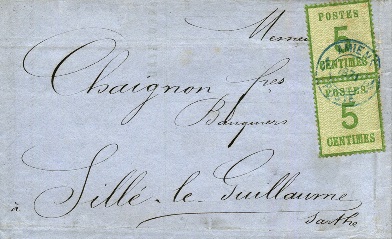 Messieurs
Chaignon fres
Banquiers
à Sillé-le-Guillaume
Sarthe
POSTES
5
CENTIMES
POSTES
5
CENTIMES